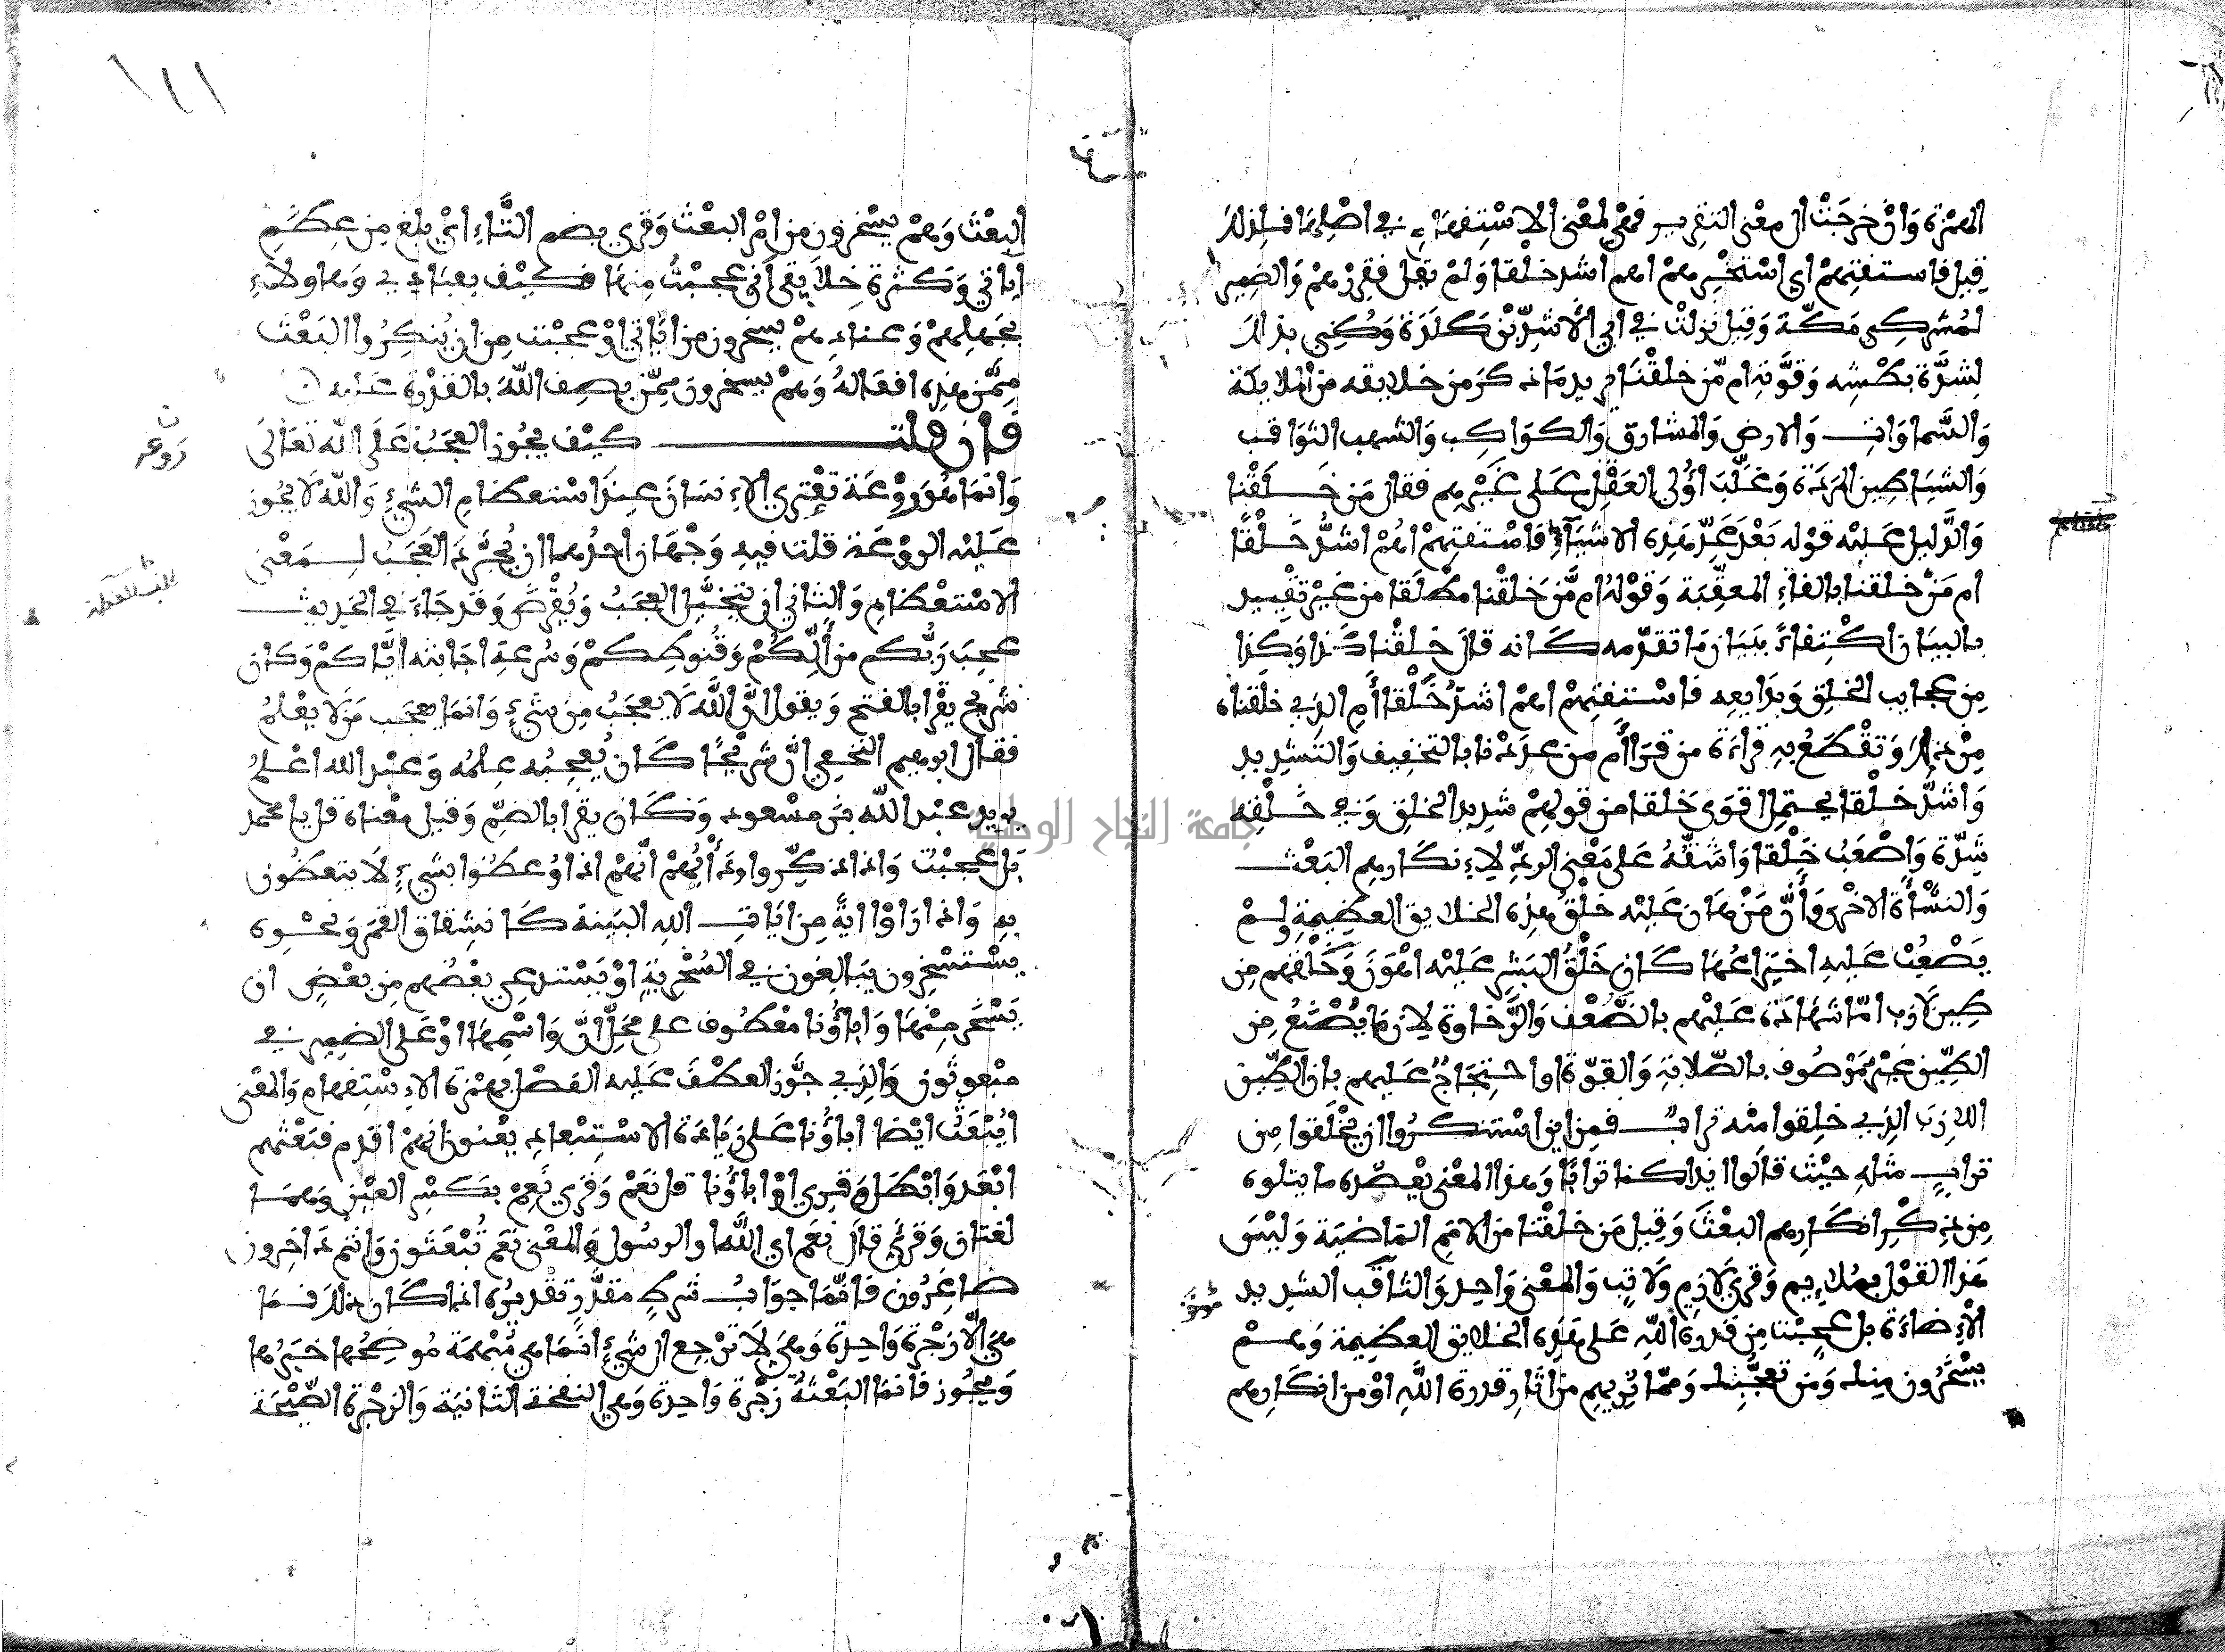 الهمزة وان خرجت الى معنى التقرير فهي لمعنى الاستفهام في اصلها فلذلك
قيل فاستفتهم اي استخبرهم اهم اشد خلقا ولم يقل فقررهم والضمير
لمشركي مكة وقيل نزلت في ابي الاشد بن كلدة وكني بذلك
لشدة بطشه وقوته ام من خلقنا يريد ما ذكر من خلايقه من الملايكة
والسماوات والارض والمشارق والكواكب والشهب الثواقب
والشياطين المردة وغلب اولي العقل على غيرهم فقال من خلقنا
والدليل عليه قوله بعد عد هذه الاشياء فاستفتهم اهم اشد خلقا
ام من خلقنا بالفاء المعقبة وقوله ام من خلقنا مطلقا من غير تقييد
بالبيان اكتفاء ببيان ما تقدمه كانه قال خلقنا كذا وكذا
من عجايب الخلق وبدايعه فاستفتهم اهم اشد خلقا أم الذي خلقناه
من ذلك وتقطع به قراءة من قرا أم من عددنا بالتخفيف والتشديد
واشد خلقا يحتمل اقوى خلقا من قولهم شديد الخلق وفي خلقه
شدة واصعب خلقا واشقه على معنى الرد لإنكارهم البعث
والنشأة الاخرى وأن من هان عليه خلق هذه الخلايق العظيمة ولم
يصعب عليه اختراعها كان خلق البشر عليه اهون وخلقهم من
طين لازب اما شهادة عليهم بالضعف والرخاوة لان ما يصنع من
الطين غير موصوف بالصلابة والقوة او احتجاج عليهم بان الطين
اللازب الذي خلقوا منه تراب فمن اين استنكروا ان يخلقوا من
تراب مثله حيث قالوا ايذا كنا ترابا وهذا المعنى يعضده ما يتلوه
من ذكر انكارهم البعث وقيل من خلقنا من الامم الماضية وليس
هذا القول بملايم وقرئ لازم ولاتب والمعنى واحد والثاقب الشديد
الإضاءة بل عجبت من قدرة الله على هذه الخلايق العظيمة وهم
يسخرون منك ومن تعجبك ومما تريهم من اثار قدرة الله او من انكارهم
١٢١
البعث وهم يسخرون من امر البعث وقرئ بضم التاء اي بلغ من عظم
اياتي وكثرة خلايقي اني عجبت منها فكيف بعبادي وهاولاء
بجهلهم وعنادهم يسخرون من اياتي او عجبت من ان ينكروا البعث
ممن هذه افعاله وهم يسخرون ممن يصف الله بالقدرة عليه
فان قلت كيف يجوز العجب على الله تعالى
وانما هو روعة تعتري الإنسان عند استعظام الشيء والله لا يجوز
عليه الروعة قلت فيه وجهان احدهما ان يجرد العجب لمعنى
الاستعظام والثاني ان يتخيل العجب ويفرض وقد جاء في الحديث
عجب ربكم من ألكم وقنوطكم وسرعة اجابته اياكم وكان
شريح يقرا بالفتح ويقول ان الله لا يعجب من شيء وانما يعجب من لا يعلم
فقال ابرهيم النخعي ان شريحا كان يعجبه علمه وعبد الله اعلم
يريد عبد الله بن مسعود وكان يقرا بالضم وقيل معناه قل يا محمد
بل عجبت واذا ذكروا ودأبهم انهم اذا وعظوا بشيء لا يتعظون
به واذا راوا اية من ايات الله البينة كانشقاق القمر ونحوه
يستسخرون يبالغون في السخرية او يستدعي بعضهم من بعض ان
يسخر منها واباؤنا معطوف على محل ان واسمها او على الضمير في
مبعوثون والذي جوز العطف عليه الفصل بهمزة الاستفهام والمعنى
ايبعث ايضا اباؤنا على زيادة الاستبعاد يعنون انهم اقدم فبعثهم
ابعد وابطل وقرئ او اباؤنا قل نعم وقرئ نعم بكسر العين وهما
لغتان وقرئ قال نعم اي الله او الرسول والمعنى نعم تبعثون وانتم داخرون
صاغرون فانما جواب شرط مقدر تقديره اذا كان ذلك فما
هي الا زجرة واحدة وهي لا ترجع الى شيء انما هي مبهمة موضحها خبرها
ويجوز فانما البعثة زجرة واحدة وهي النفخة الثانية والزجرة الصيحة
جامعة النجاح الوطنية